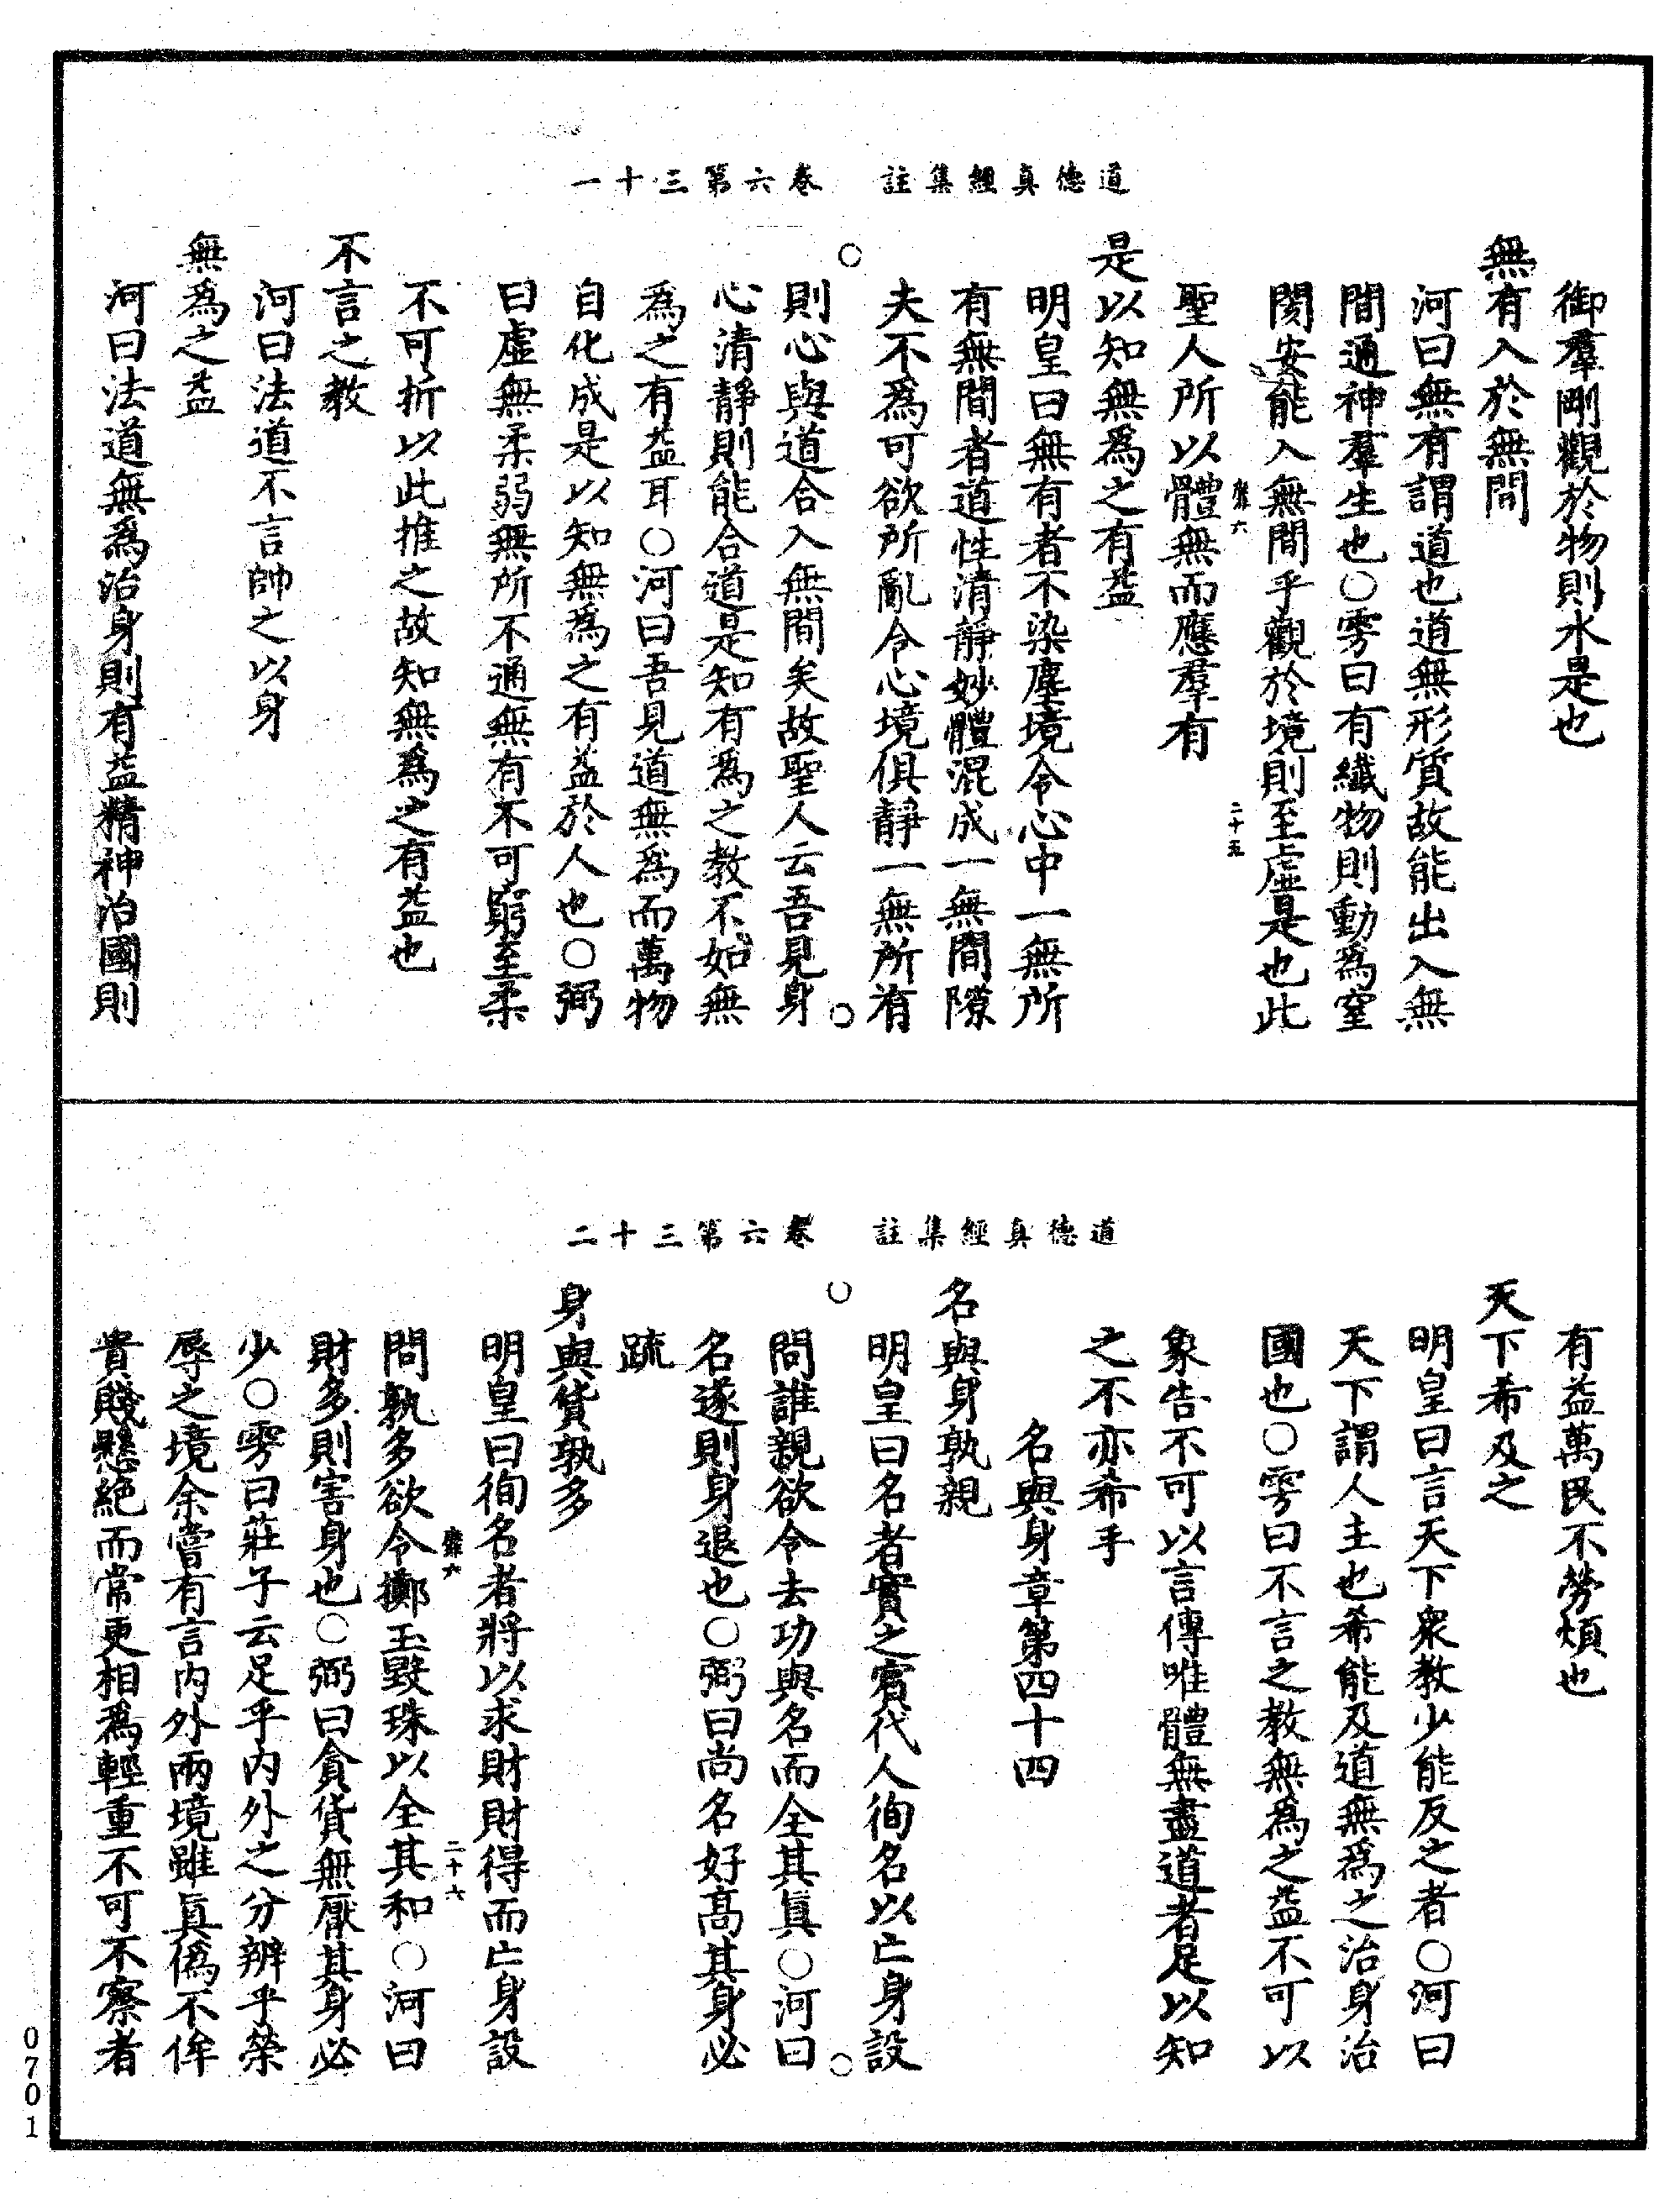 道德真經集註　卷六第三十一
御羣剛觀於物則水是也
無有入於無間
河曰無有謂道也道無形質故能出入無
間通神羣生也○雱曰有纎物則動為窒
閡安能入無間乎觀於境則至虛是也此
二十五
聖人所以體無而應羣有
是以知無為之有益
明皇曰無有者不染塵境令心中一無所
有無間者道性清靜妙體混成一無間隙
夫不為可欲所亂令心境俱靜一無所有
則心與道合入無間矣故聖人云吾見身
心清靜則能合道是知有為之教不如無
為之有益耳○河曰吾見道無為而萬物
自化成是以知無為之有益於人也○弼
曰虛無柔弱無所不通無有不可窮至柔
不可折以此推之故知無為之有益也
不言之教
河曰法道不言帥之以身
無為之益
河曰法道無為治身則有益精神治國則
道德真經集註　卷六第三十二
有益萬民不勞煩也
天下希及之
明皇曰言天下衆教少能反之者○河曰
天下謂人主也希能及道無為之治身治
國也○雱曰不言之教無為之益不可以
象告不可以言傳唯體無盡道者足以知
之不亦希乎
名與身章第四十四
名與身孰親
明皇曰名者實之賓代人徇名以亡身設
問誰親欲令去功與名而全其眞○河曰
名遂則身退也○弼曰尚名好高其身必
疏
身與貨孰多
明皇曰徇名者將以求財財得而亡身設
二十六
問孰多欲令擲玉毀珠以全其和○河曰
財多則害身也○弼曰貪貨無厭其身必
少○雱曰莊子云足乎内外之分辨乎榮
辱之境余嘗有言内外兩境雖眞偽不侔
貴賤懸絶而常更相為輕重不可不察者
0701